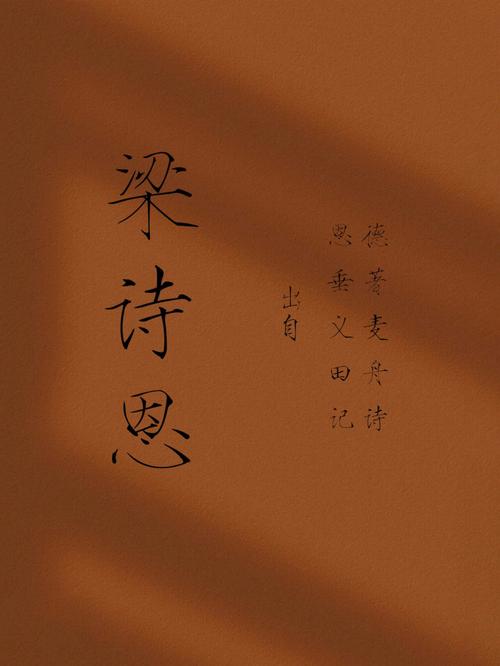 德著麦舟诗
恩垂义田记
出自
梁诗恩